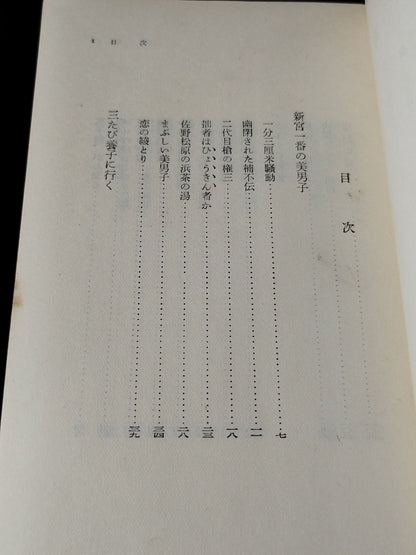 目次
新宮一番の美男子
一分三厘米騒動……七
幽閉された補不伝……一一
二代目槍の権三……一八
拙者はひょうきん者か……二三
佐野松原の浜茶の湯……二八
まぶしい美男子……三四
恋の綾とり……三九
三たび養子に行く
目次